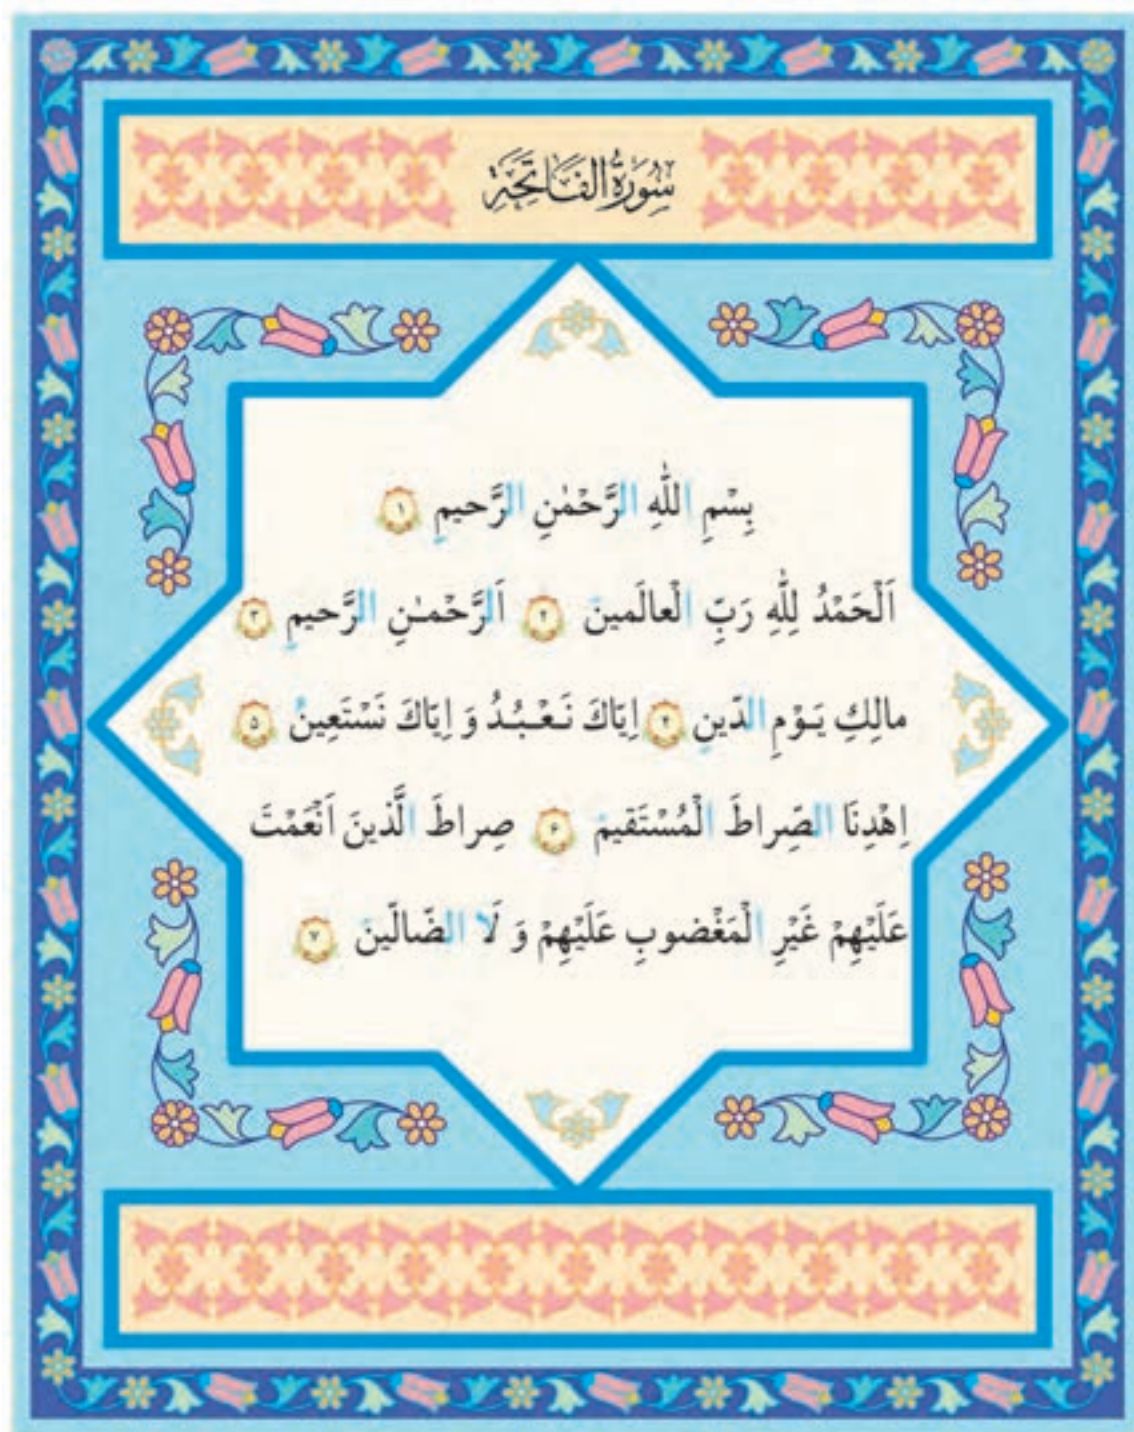 سُورَةُ الفَاتِحَةِ
بِسْمِ اللّٰهِ الرَّحْمٰنِ الرَّحيمِ ﴿۱﴾
اَلْحَمْدُ لِلّٰهِ رَبِّ الْعالَمينَ ﴿۲﴾ اَلرَّحْمـٰنِ الرَّحيمِ ﴿۳﴾
مالِكِ يَـوْمِ الدّينِ ﴿۴﴾ اِيّاكَ نَـعْـبُـدُ وَ اِيّاكَ نَسْتَعِينُ ﴿۵﴾
اِهْدِنَا الصِّراطَ الْمُسْتَقيمَ ﴿۶﴾ صِراطَ الَّذينَ اَنْعَمْتَ
عَلَيْهِمْ غَيْرِ الْمَغْضوبِ عَلَيْهِمْ وَ لَا الضّالّينَ ﴿۷﴾